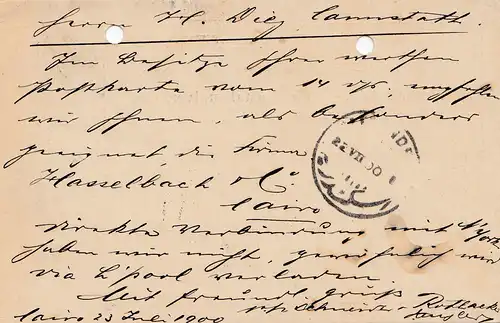 Herrn H. Diez Cannstatt.
Im Besitze Ihrer werthen
Postkarte vom 14 ds, empfehlen
wir Ihnen, als besonders
geeignet die Firma
Hasselbach & Co
Cairo
direkte Verbindung mit
haben wir nicht, gewöhnlich wird
via L'pool verladen.
Mit freundl. Gruß
Cairo 23 Juli 1900
22 VII 00
اسكندرية